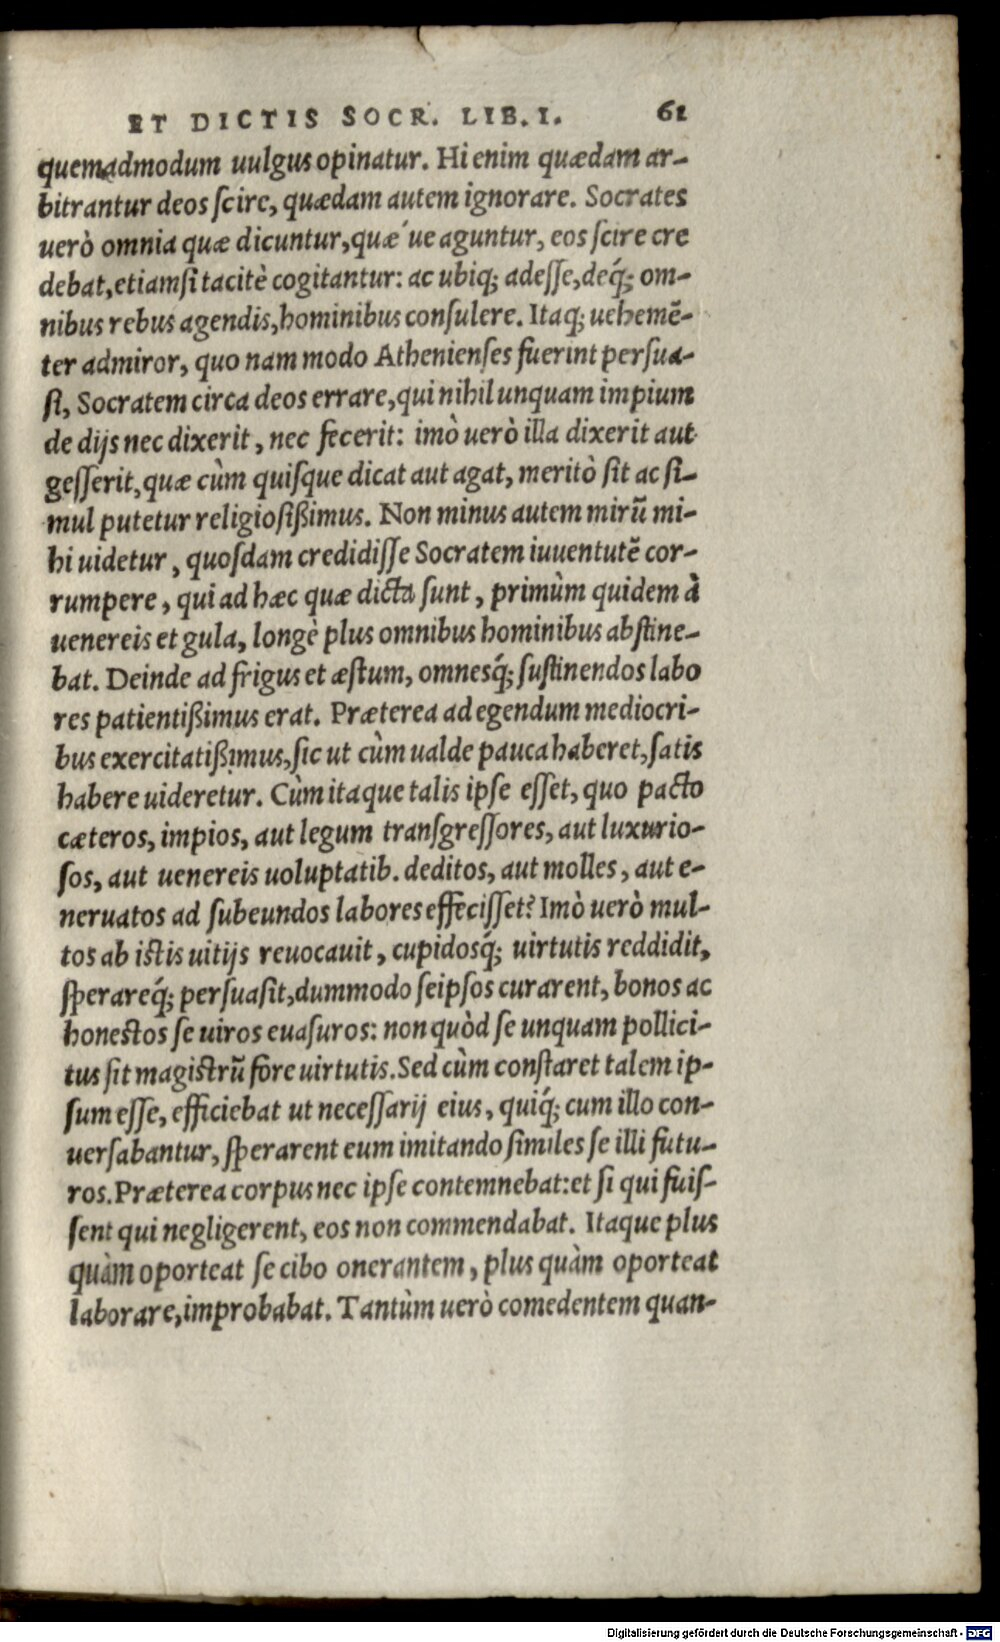 ET DICTIS SOCR. LIB. I. 61
quemadmodum uulgus opinatur. Hi enim quædam ar-
bitrantur deos scire, quædam autem ignorare. Socrates
uerò omnia quæ dicuntur, quæ´ue aguntur, eos scire cre
debat, etiamsi tacitè cogitantur: ac ubiq; adesse, deq́; om-
nibus rebus agendis, hominibus consulere. Itaq; uehemē-
ter admiror, quo nam modo Athenienses fuerint persua-
si, Socratem circa deos errare, qui nihil unquam impium
de dijs nec dixerit, nec fecerit: imò uerò illa dixerit aut
gesserit, quæ cùm quisque dicat aut agat, meritò sit ac si-
mul putetur religiosißimus. Non minus autem mirū mi-
hi uidetur, quosdam credidisse Socratem iuuentutē cor-
rumpere, qui ad hæc quæ dicta sunt, primùm quidem à
uenereis et gula, longè plus omnibus hominibus abstine-
bat. Deinde ad frigus et æstum, omnesq́; sustinendos labo
res patientißimus erat. Præterea ad egendum mediocri-
bus exercitatißimus, sic ut cùm ualde pauca haberet, satis
habere uideretur. Cùm itaque talis ipse esset, quo pacto
cæteros, impios, aut legum transgressores, aut luxurio-
sos, aut uenereis uoluptatib. deditos, aut molles, aut e-
neruatos ad subeundos labores effecisset? Imò uerò mul-
tos ab istis uitijs reuocauit, cupidosq́; uirtutis reddidit,
sperareq́; persuasit, dummodo seipsos curarent, bonos ac
honestos se uiros euasuros: non quòd se unquam pollici-
tus sit magistrū fore uirtutis. Sed cùm constaret talem ip-
sum esse, efficiebat ut necessarij eius, quiq́; cum illo con-
uersabantur, sperarent eum imitando similes se illi futu-
ros. Præterea corpus nec ipse contemnebat: et si qui fuis-
sent qui negligerent, eos non commendabat. Itaque plus
quàm oporteat se cibo onerantem, plus quàm oporteat
laborare, improbabat. Tantùm uerò comedentem quan-
Digitalisierung gefördert durch die Deutsche Forschungsgemeinschaft - DFG